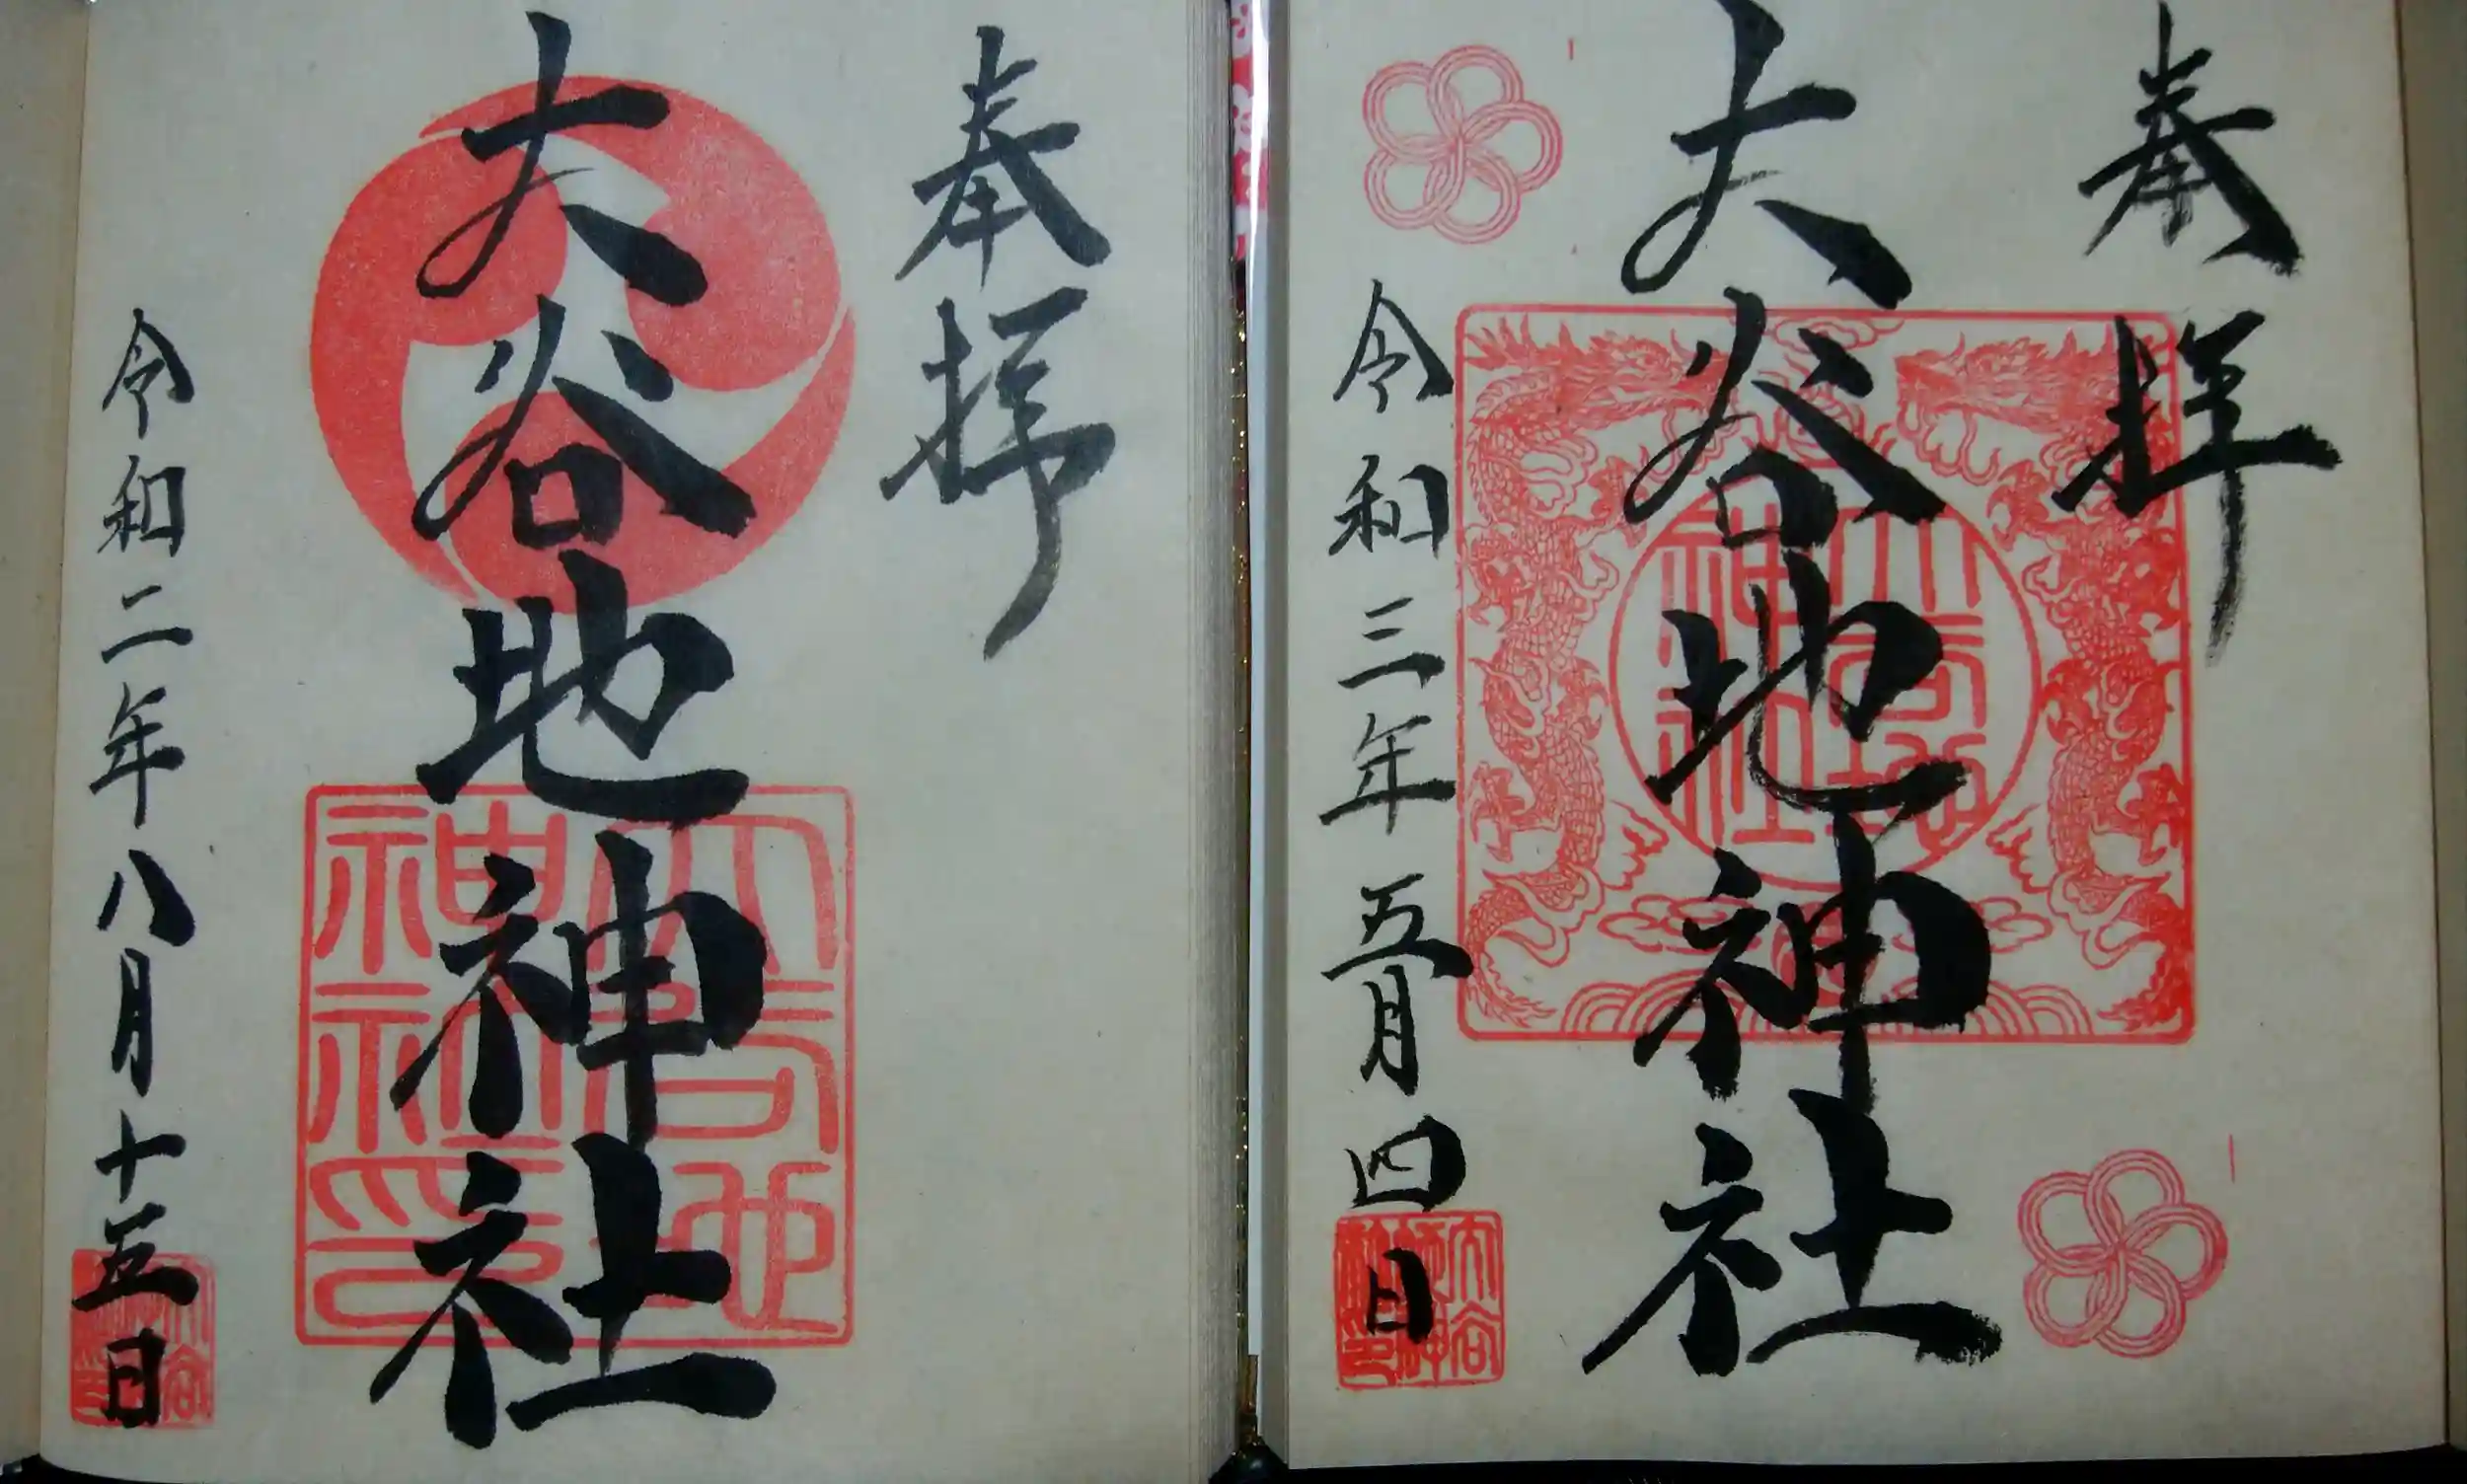 奉拝
大谷地神社
令和二年八月十五日
大谷地
神社印
奉拝
大谷地神社
令和三年五月四日
大谷地
神社